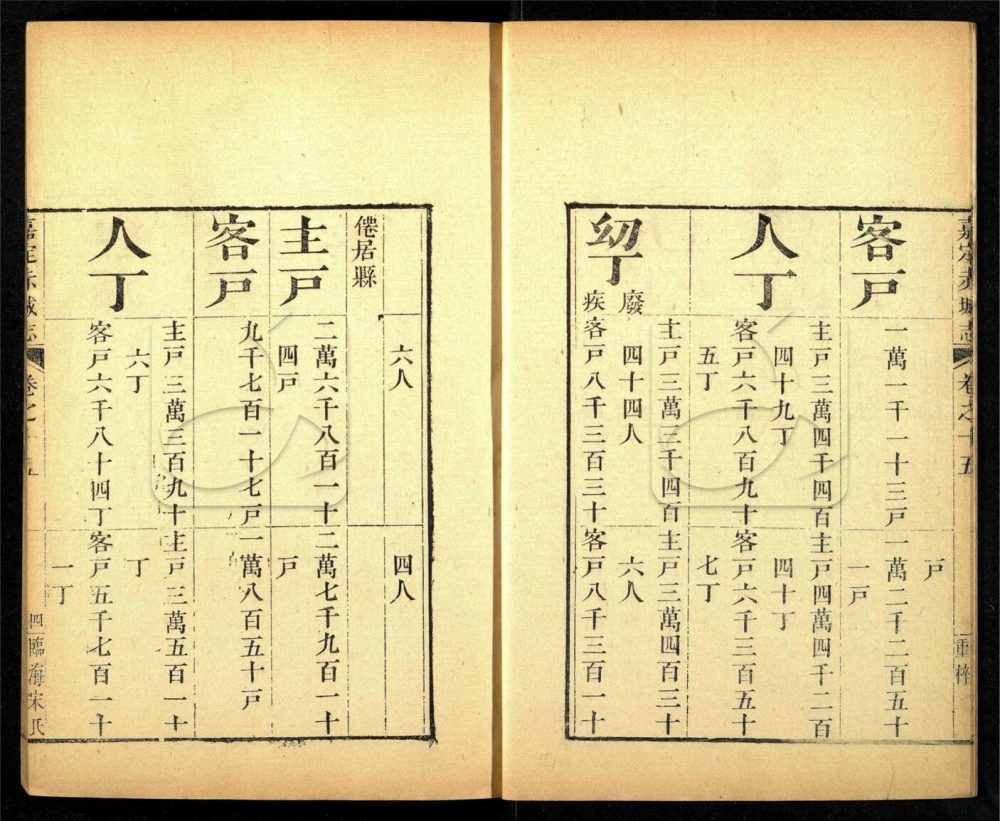 嘉定赤城志 卷之十五 重梓
戶
客戶 一萬一千一十三戶 一萬二千二百五十
一戶
人丁
主戶三萬四千四百 主戶四萬四千二百
四十九丁 四十丁
客戶六千八百九十 客戶六千三百五十
五丁 七丁
㓜丁
主戶三萬三千四百 主戶三萬四百三十
廢 四十四人 六人
疾 客戶八千三百三十 客戶八千三百一十
六人 四人
僊居縣
主戶 二萬六千八百一十 二萬七千九百一十
四戶 戶
客戶 九千七百一十七戶 一萬八百五十戶
人丁
主戶三萬三百九十 主戶三萬五百一十
六丁 丁
客戶六千八十四丁 客戶五千七百一十
一丁
嘉定赤城志 卷之十五 四 臨海宋氏